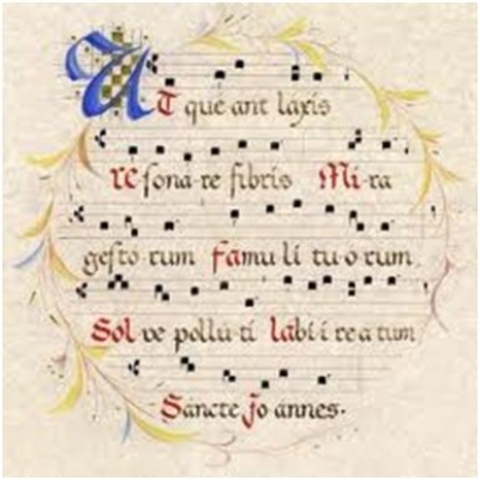 UT que ant laxis
re sona re fibris Mi ra
gesto rum famu li tu o rum
Sol ve pollu ti labi i re a tum
Sancte Jo annes.